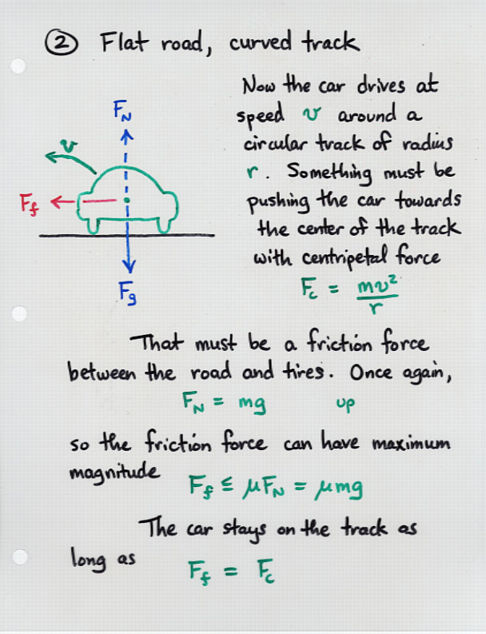 ② Flat road, curved track
Now the car drives at
speed v around a
circular track of radius
r. Something must be
pushing the car towards
the center of the track
with centripetal force
F_c = mv²/r
F_N
v
F_f
F_g
That must be a friction force
between the road and tires. Once again,
F_N = mg up
so the friction force can have maximum
magnitude
F_f ≤ μF_N = μmg
The car stays on the track as
long as
F_f = F_c